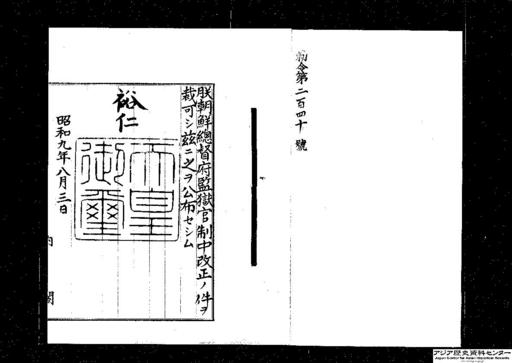 勅令第二百四十號
朕朝鮮總督府監獄官制中改正ノ件ヲ
裁可シ玆ニ之ヲ公布セシム
裕仁
天皇
御璽
昭和九年八月三日
内閣
アジア歴史資料センター
Japan Center for Asian Historical Records